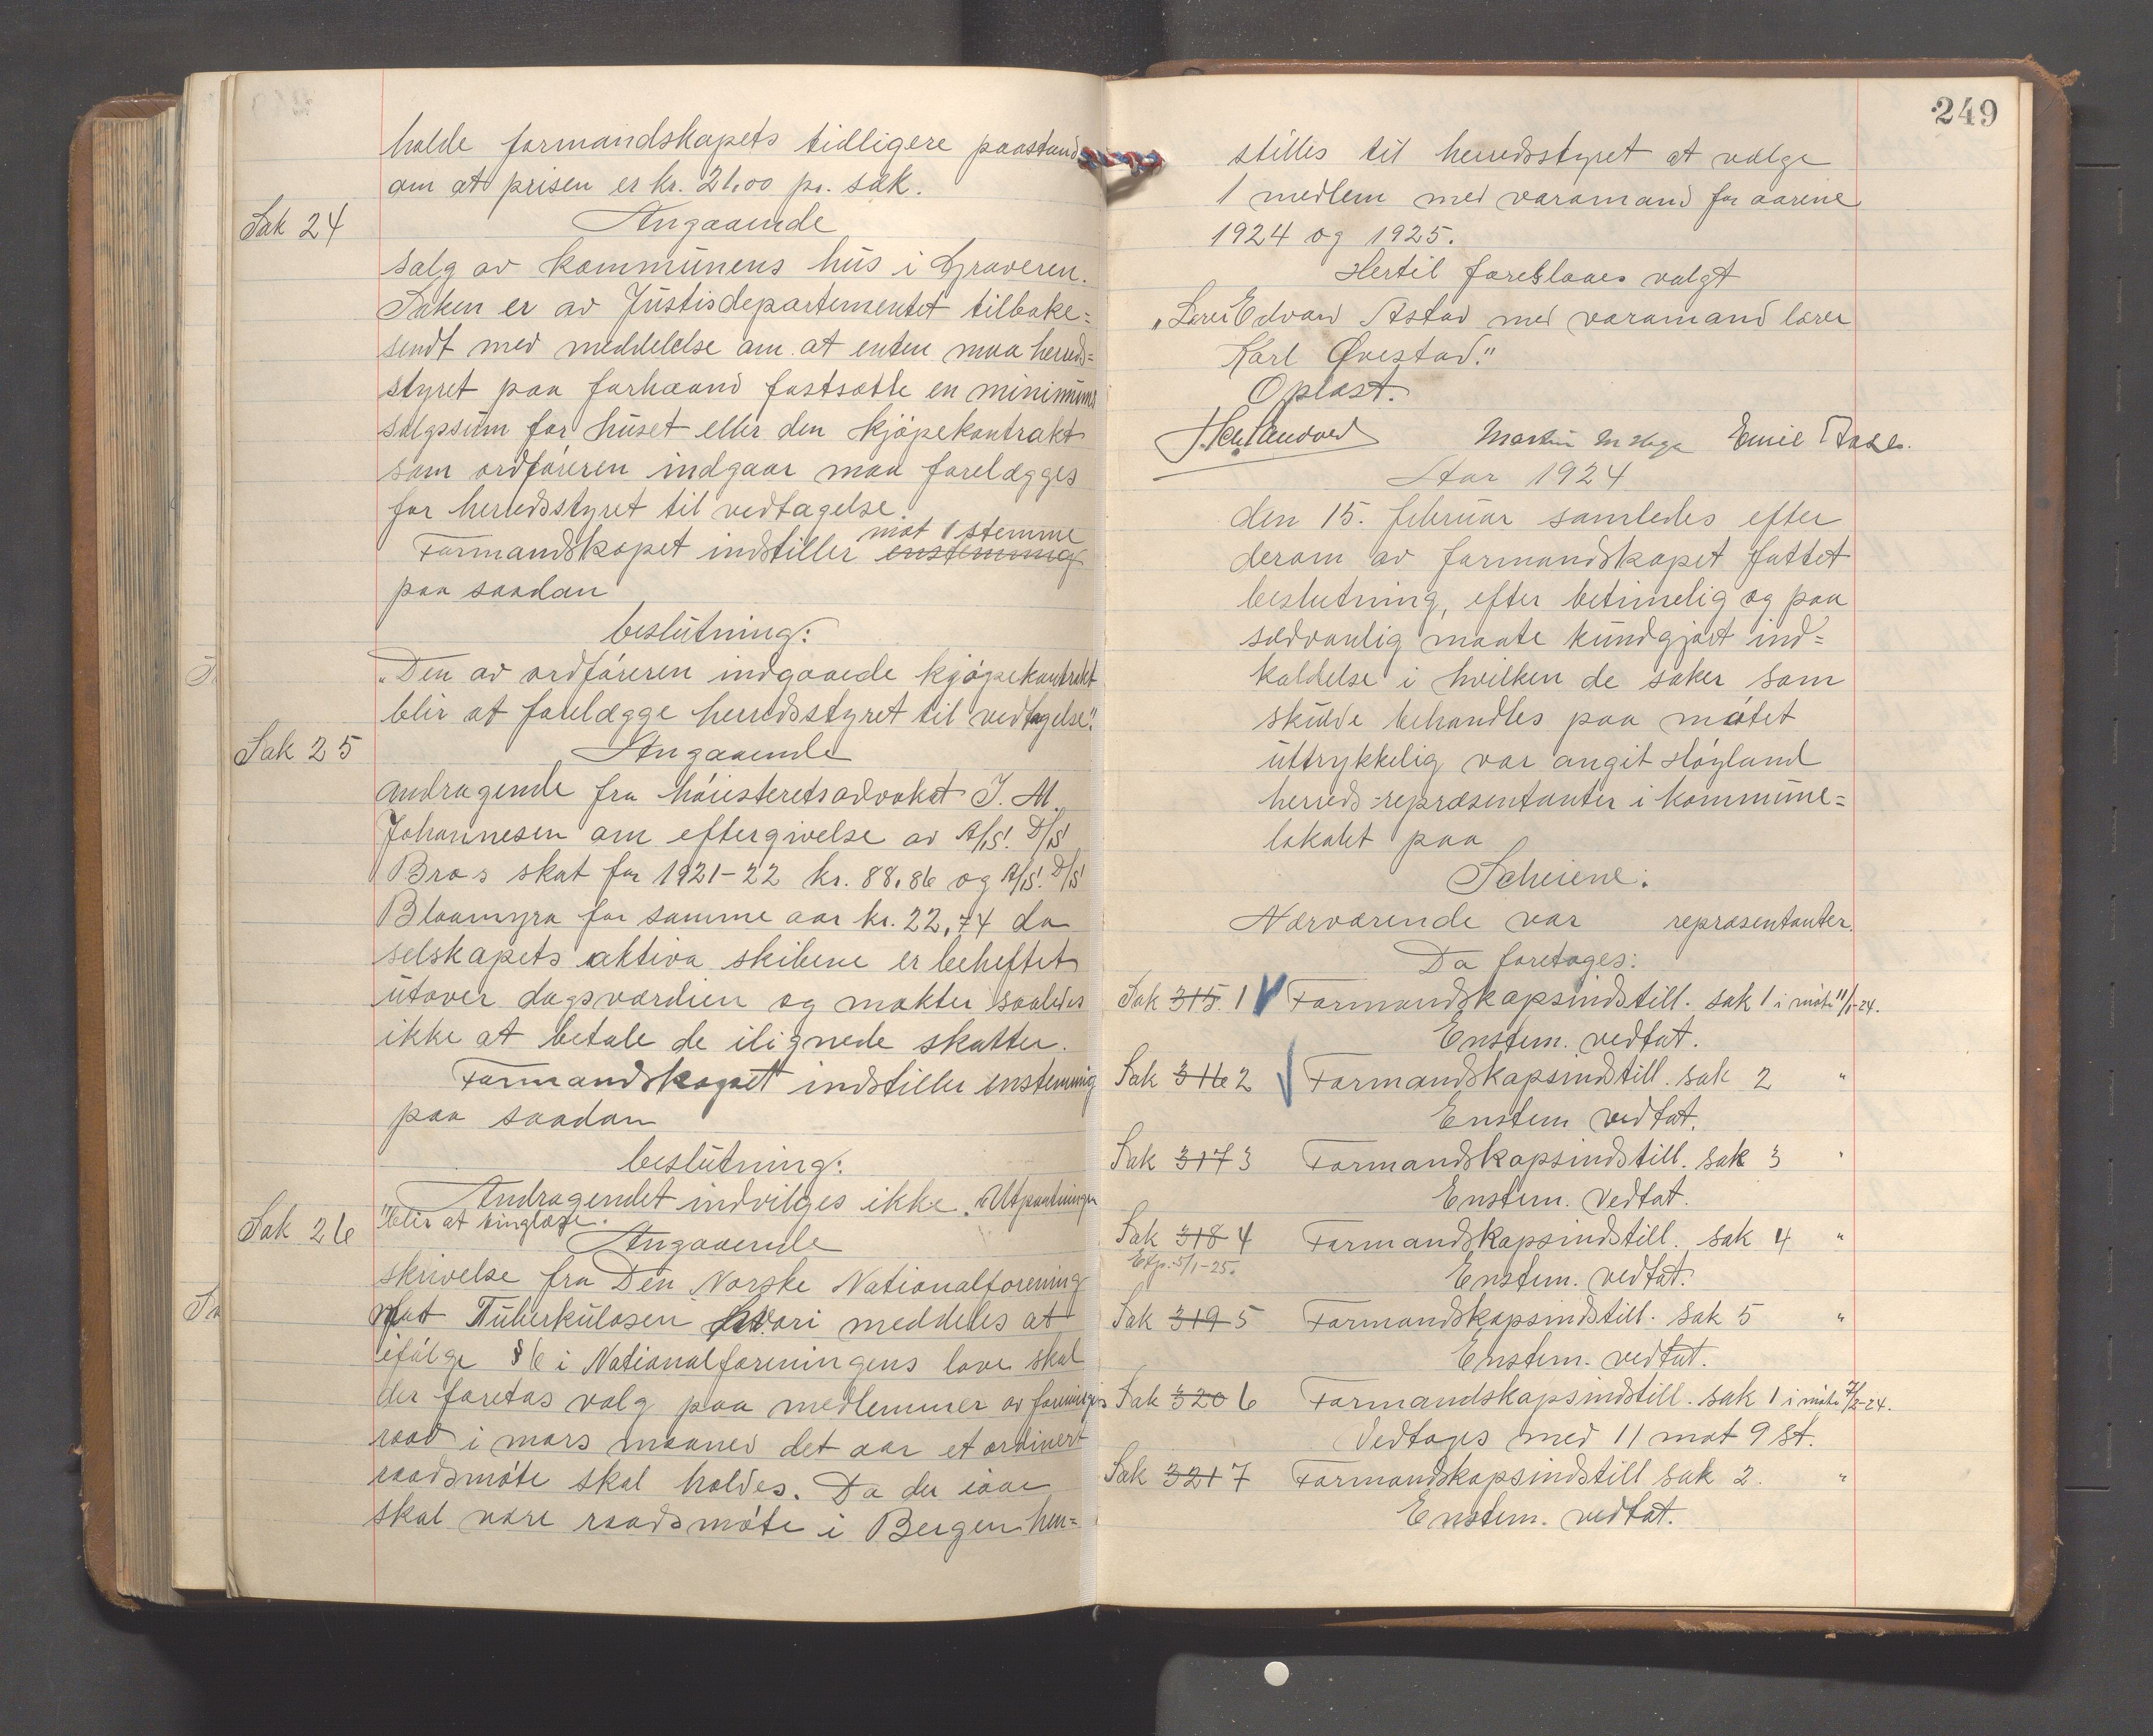 holde formandskapets tidligere paastand
om at prisen er kr. 21.00 pr. sak.
Sak 24
Angaaende
salg av kommunens hus i Graveren.
Saken er av Justisdepartementet tilbake=
sendt med meddelelse om at enten maa herreds=
styret paa forhaand fastsætte en minimums
salgssum for huset eller den kjøpekontrakt
som ordføreren indgaar maa forelægges
for herredsstyret til vedtagelse.
mot 1 stemme
Formandskapet indstiller enstemmig
paa saadan
beslutning:
"Den av ordføreren indgaaede kjøpekontrakt
blir at forelægge herredsstyret til vedtagelse."
Sak 25
Angaaende
andragende fra høiesteretsadvokat J. M.
Johannesen om eftergivelse av A/S. D/S
Bros skat for 1921-22 kr. 88.86 og A/S. D/S
Blaamyra for samme aar kr. 22,74 da
selskapets aktiva skibene er beheftet
utover dagsværdien og makter saaledes
ikke at betale de ilignede skatter.
Formandskapet indstiller enstemmig
paa saadan
beslutning:
Andragendet indvilges ikke. "Utpantningen
blir at tinglæse."
Sak 26
Angaaende
skrivelse fra Den Norske Nationalforening
mot Tuberkulosen hvori meddeles at
ifølge § 6 i Nationalforeningens love skal
der foretas valg paa medlemmer av foreningens
raad i mars maaned det aar et ordinert
raadsmøte skal holdes. Da der iaar
skal være raadsmøte i Bergen hen=
249
stilles til herredsstyret at vælge
1 medlem med varamand for aarene
1924 og 1925.
Hertil foreslaaes valgt
"Lærer Edvard Astad med varamand lærer
Karl Øvestad."
Oplæst.
Martin M Hege Emil Aase.
Aar 1924
den 15. februar samledes efter
derom av formandskapet fattet
beslutning, efter betimelig og paa
sædvanlig maate kundgjort ind=
kaldelse i hvilken de saker som
skulde behandles paa møtet
uttrykkelig var angit Høyland
herreds-repræsentanter i kommune=
lokalet paa
Scheiene.
Nærværende var repræsentanter.
Da foretages:
Sak 315. 1 Formandskapsindstill. sak 1 i møte 11/1-24.
Enstem. vedtat.
Sak 316 2 Formandskapsindstill. sak 2 "
Enstem vedtat.
Sak 317 3 Formandskapsindstill. sak 3 "
Enstem. vedtat.
Sak 318 4 Formandskapsindstill. sak 4 "
Exp. 5/1-25.
Enstem. vedtat.
Sak 319 5 Formandskapsindstill. sak 5 "
Enstem. vedtat.
Sak 320 6 Formandskapsindstill. sak 1 i møte 7/2-24.
Vedtages med 11 mot 9 st.
Sak 321 7 Formandskapsindstill sak 2. "
Enstem. vedtat.